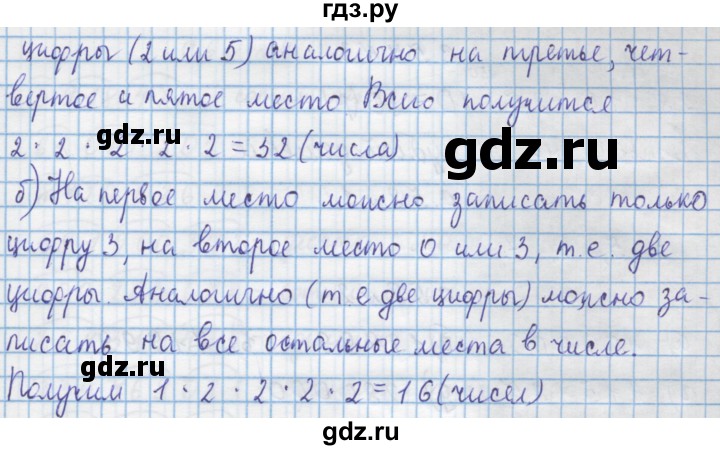 гдз.ру
цифры (2 или 5) аналогично на третье, чет-
вертое и пятое место. Всио получится
gdz.ru
gdz.ru
2 · 2 · 2 · 2 · 2 = 32 (числа)
б) На первое место можно записать только
цифру 3, на второе место 0 или 3, т.е. две
цифры. Аналогично (т е две цифры) можно за-
писать на все остальные места в числе.
gdz.ru
gdz.ru
Получим 1 · 2 · 2 · 2 · 2 = 16 (чисел)
gdz.ru